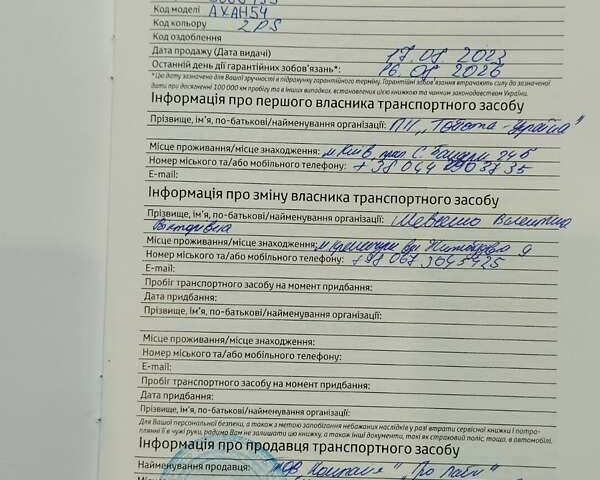 Код моделі AXAH54
Код кольору 2PS
Код оздоблення
Дата продажу (Дата видачі) 17.08 2023
Останній день дії гарантійних зобов'язань*: 16.08 2026
*Цю дату зазначено для Вашої зручності в підрахунку гарантійного терміну. Гарантійні зобов'язання втрачають силу до зазначеної
дати при досягненні 100 000 км пробігу та в інших випадках, встановлених цією книжкою та чинним законодавством України.
Інформація про першого власника транспортного засобу
Прізвище, ім'я, по-батькові/найменування організації: ПІІ „Тойота-Україна"
Місце проживання/місце знаходження: м.Київ, просп. С. Бандери, 24б
Номер міського та/або мобільного телефону: +38044
E-mail:
Інформація про зміну власника транспортного засобу
Прізвище, ім'я, по-батькові/найменування організації: Валентина
Вікторівна
Місце проживання/місце знаходження: м.Кременчук вул. 9
Номер міського та/або мобільного телефону: 067 3645425
E-mail:
Пробіг транспортного засобу на момент придбання:
Дата придбання:
Прізвище, ім'я, по-батькові/найменування організації:
Місце проживання/місце знаходження:
Номер міського та/або мобільного телефону:
E-mail:
Пробіг транспортного засобу на момент придбання:
Дата придбання:
Прізвище, ім'я, по-батькові/найменування організації:
Для Вашої персональної безпеки, а також з метою запобігання небажаних наслідків у разі втрати сервісної книжки і потра-
плянні її в чужі руки, радимо Вам не залишати цю книжку, а також інші документи, такі як страховий поліс, тощо, в автомобілі.
Інформація про продавця транспортного засобу
Найменування продавця: ТОВ „Компанія"